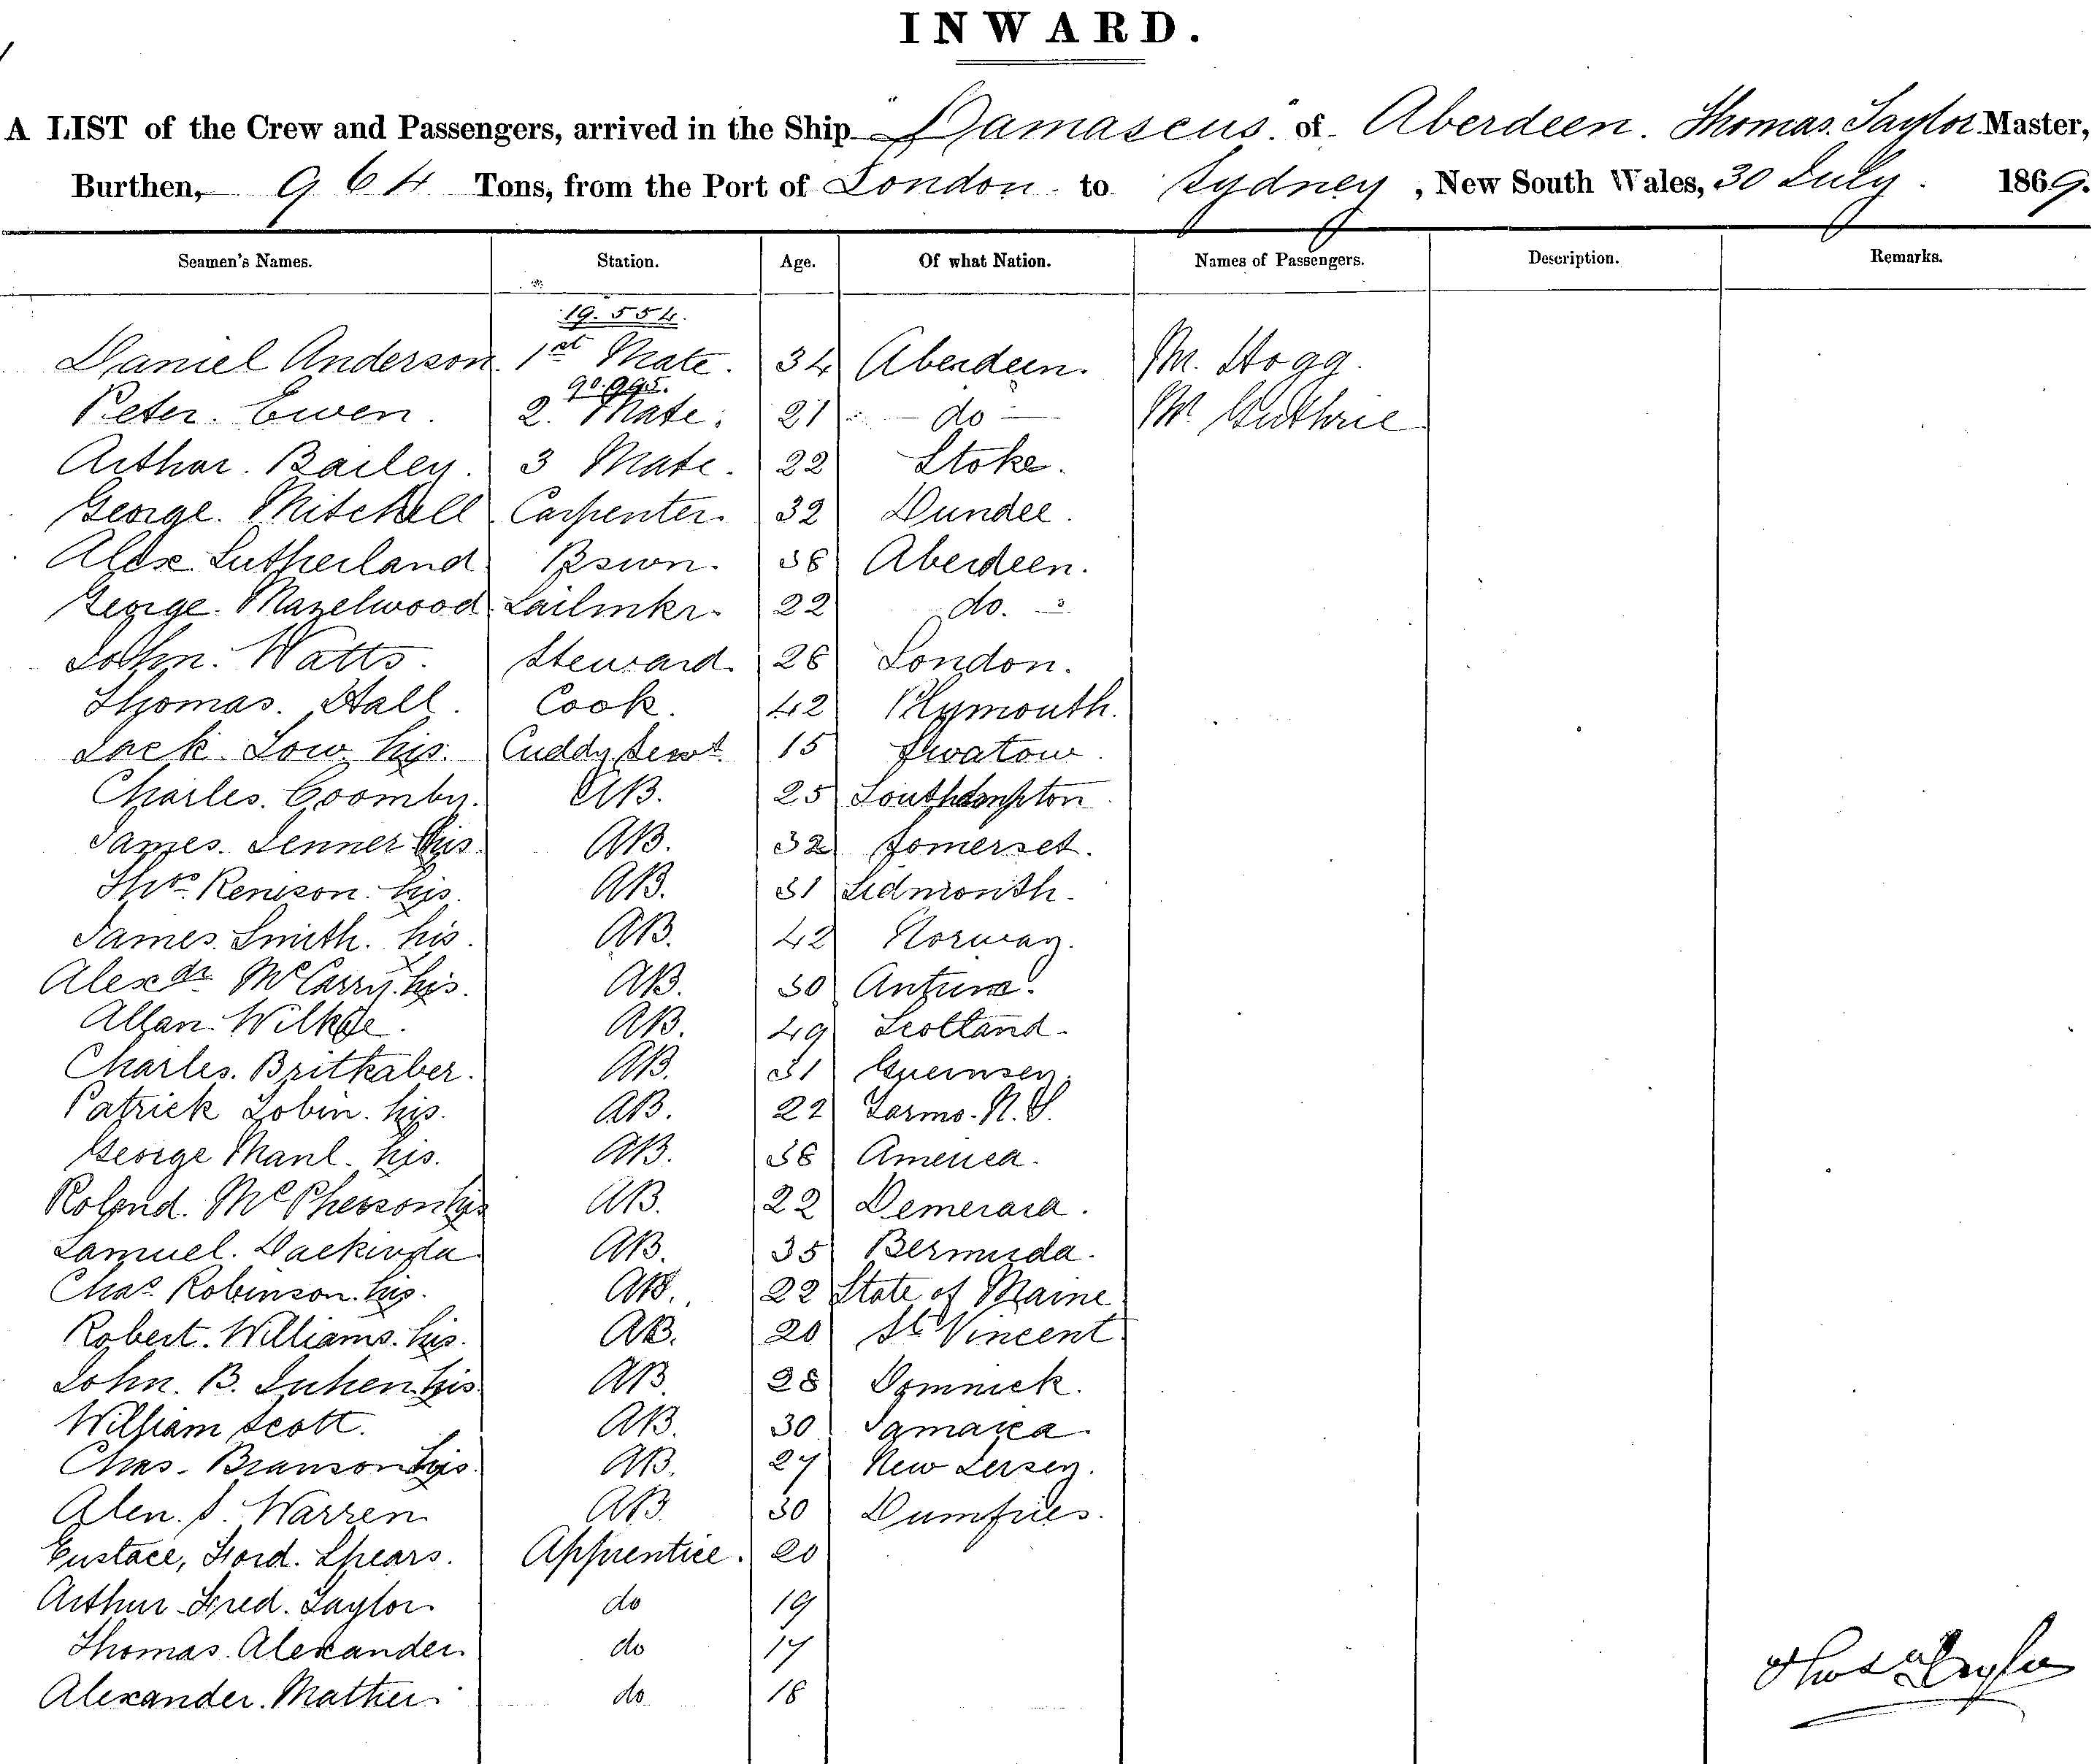 INWARD.
A LIST of the Crew and Passengers, arrived in the Ship "Damascus" of Aberdeen. Thomas Taylor Master,
Burthen, 964 Tons, from the Port of London to Sydney, New South Wales, 30 July. 1869.
Seamen's Names. Station. Age. Of what Nation. Names of Passengers. Description. Remarks.
19.554.
Daniel Anderson. 1st Mate. 34 Aberdeen. Mr. Hogg.
90.995.
Peter. Ewen. 2. Mate. 21 do Mr Guthrie
Arthur. Bailey. 3 Mate. 22 Stoke.
George. Mitchell Carpenter. 32 Dundee.
Alex Sutherland Bswn. 36 Aberdeen.
George. Mazelwood Sailmkr. 22 do.
John. Watts. Steward. 26 London.
Thomas. Hall. Cook. 42 Plymouth.
Jack. Low. his. Cuddy Servt 15 Swatow.
Charles. Coomby. AB. 25 Southampton
James. Jenner his. AB. 32 Somerset.
Thos Renison. his. AB. 31 Sidmouth.
James. Smith. his. AB. 42 Norway.
Alexdr McCarry. his. AB. 30
Allan. Wilkie. AB. 49 Scotland.
Charles. Brithaber. AB. 31 Guernsey.
Patrick Tobin. his. AB. 22
George Manl. his. AB. 36 America.
Rolend. McPherson his AB. 22 Demerara.
Samuel. AB. 35 Bermuda.
Chas Robinson. his. AB. 22 State of Maine
Robert. Williams. his. AB. 20 St Vincent
John. B. his AB 28 Domnick.
William Scott. AB. 30 Jamaica.
Chas. Branson his. AB. 27 New Jersey.
Alen. S. Warren AB. 30 Dumfries.
Eustace, Ford. Spears. Apprentice. 20
Arthur Fred. Taylor do 19
Thomas. Alexander do 17
Alexander. Mather. do 18
Thos Taylor